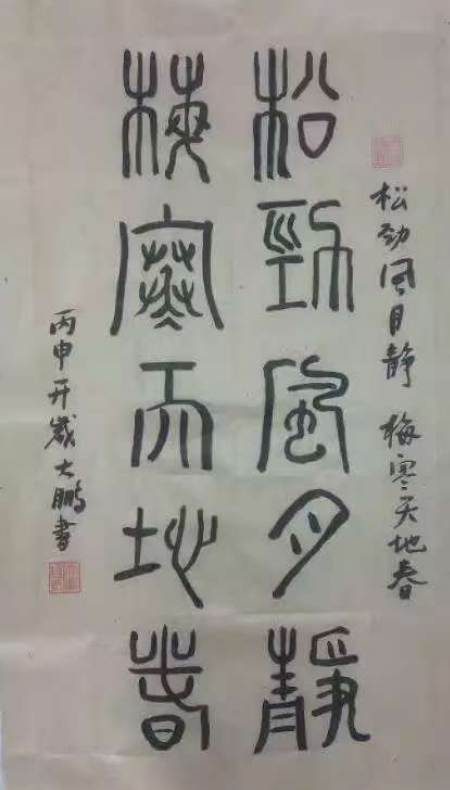 松劲风月静 梅寒天地春
松勁風月靜
梅寒天地春
丙申开歲大鵬書